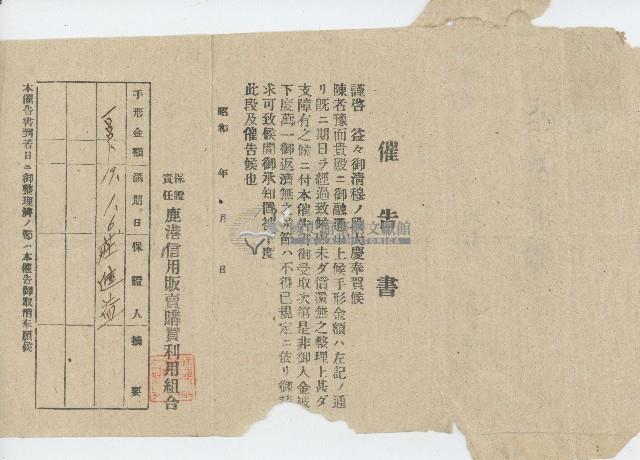 催告書
謹啓 益々御清穆ノ段大慶奉賀候
陳者豫而貴殿ニ御融通申上候手形金額ハ左記ノ通
リ既ニ期日ヲ經過致候モ未ダ償還無之整理上甚ダ
支障有之候ニ付本催告書御受取次第是非御入金被
下度萬一御返濟無之節ハ不得已規定ニ依リ御請
求可致候間御承知置被下度
此段及催告候也
昭和 年 月 日
保證
責任 鹿港信用販賣購買利用組合
手形金額 滿期日 保證人 摘要
本催告書到着日ニ御整理濟ノ節ハ本催告御取消奉願候